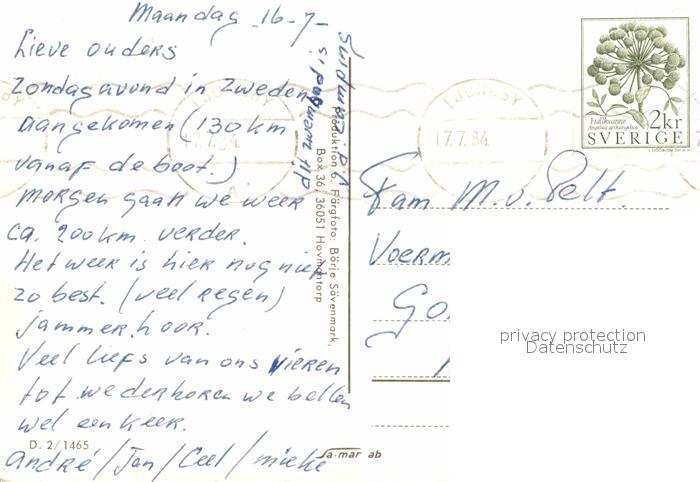 Maandag 16-7-
Lieve ouders
Zondagavond in Zweden
aangekomen (130 km
vanaf de boot.)
morgen gaan we weer
ca. 200 km verder.
Het weer is hier nog niet
zo best. (veel regen)
jammer hoor.
Veel liefs van ons vieren
tot wederhoren we bellen
wel een keer.
André/Jan/Ceel/mieke
D. 2/1465
Produktion & Färgfoto: Börje Sävenmark,
Box 36, 36051 Hovmantorp
sa-mar ab
LJUNGBY
17.7.84.
LJUNGBY
17.7.84
Fjällkvanne
Angelica archangelica
2kr
SVERIGE
Fam M. v. Pelt.
Voerm
Go
privacy protection
Datenschutz